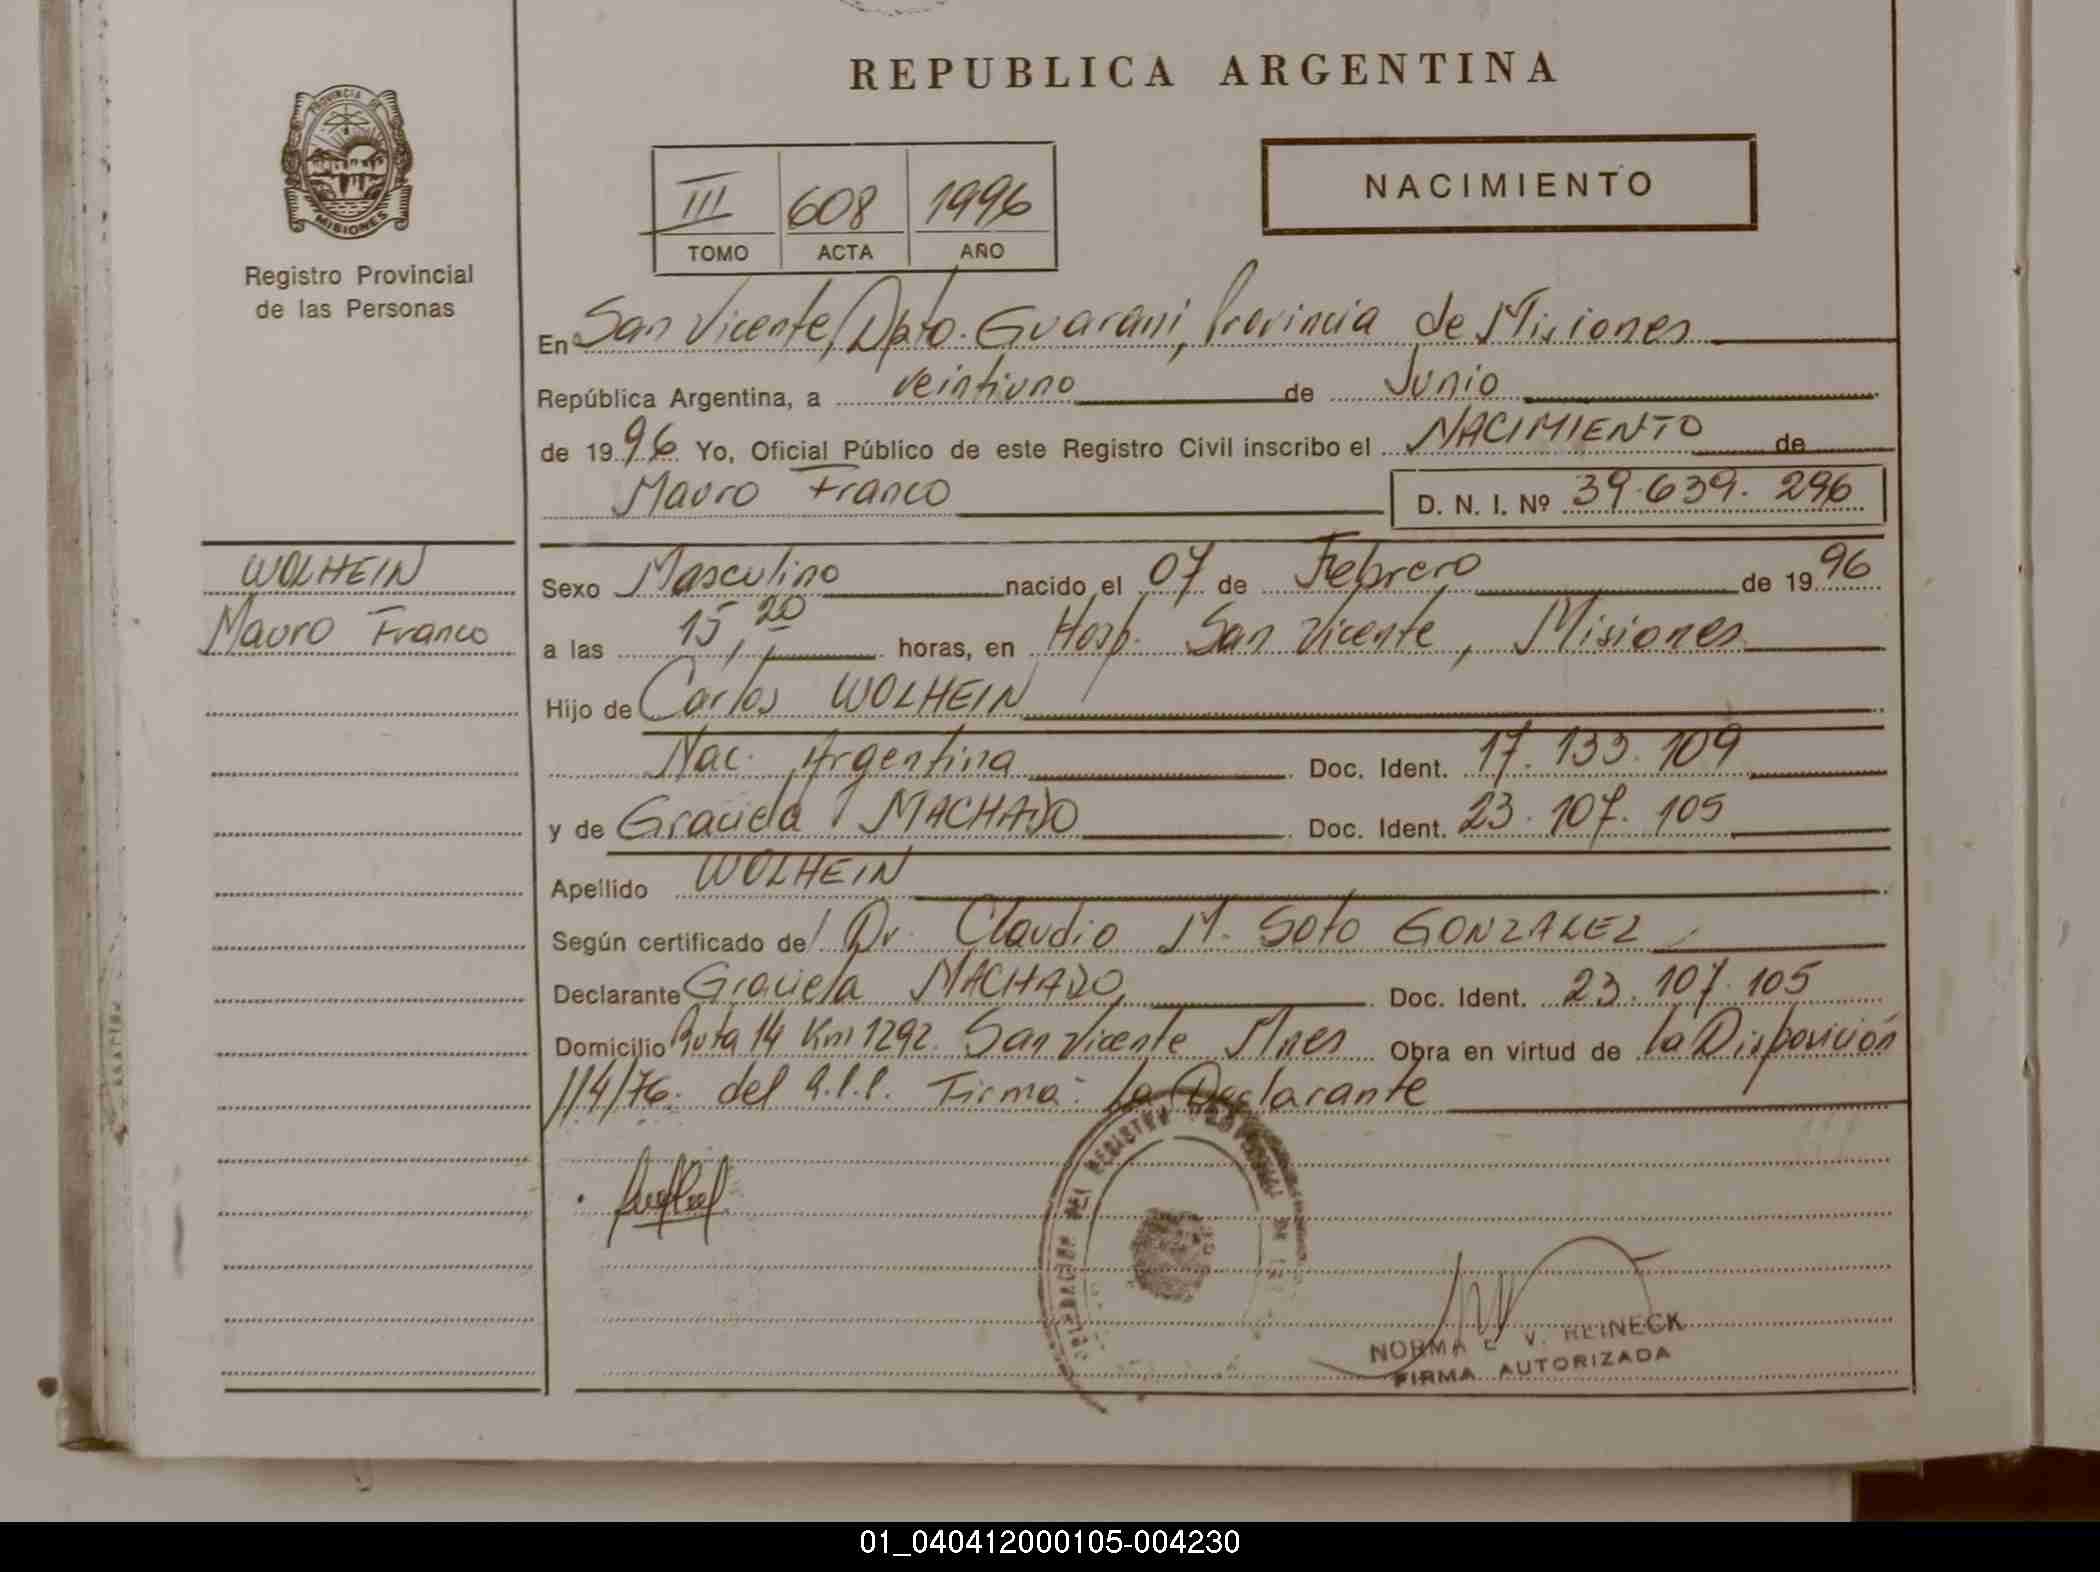 REPUBLICA ARGENTINA
PROVINCIA DE
MISIONES
Registro Provincial
de las Personas
III 608 1996
TOMO ACTA AÑO
NACIMIENTO
En San Vicente, Dpto. Guarani, Provincia de Misiones
República Argentina, a veintiuno de Junio
de 1996 Yo, Oficial Público de este Registro Civil inscribo el NACIMIENTO de
Mauro Franco D. N. I. Nº 39.639.296
WOLHEIN
Mauro Franco
Sexo Masculino nacido el 07 de Febrero de 1996
a las 15,20 horas, en Hosp. San Vicente, Misiones
Hijo de Carlos WOLHEIN
Nac. Argentina Doc. Ident. 17.133.109
y de Graciela MACHADO Doc. Ident. 23.107.105
Apellido WOLHEIN
Según certificado de Dr. Claudio M. Soto GONZALEZ
Declarante Graciela MACHADO, Doc. Ident. 23.107.105
Domicilio Ruta 14 Km 1292. San Vicente Mnes Obra en virtud de la Disposición
114/76. del Firma: La Declarante
REGISTRO PROVINCIAL DE
NORMA V. REINECK
FIRMA AUTORIZADA
01_040412000105-004230